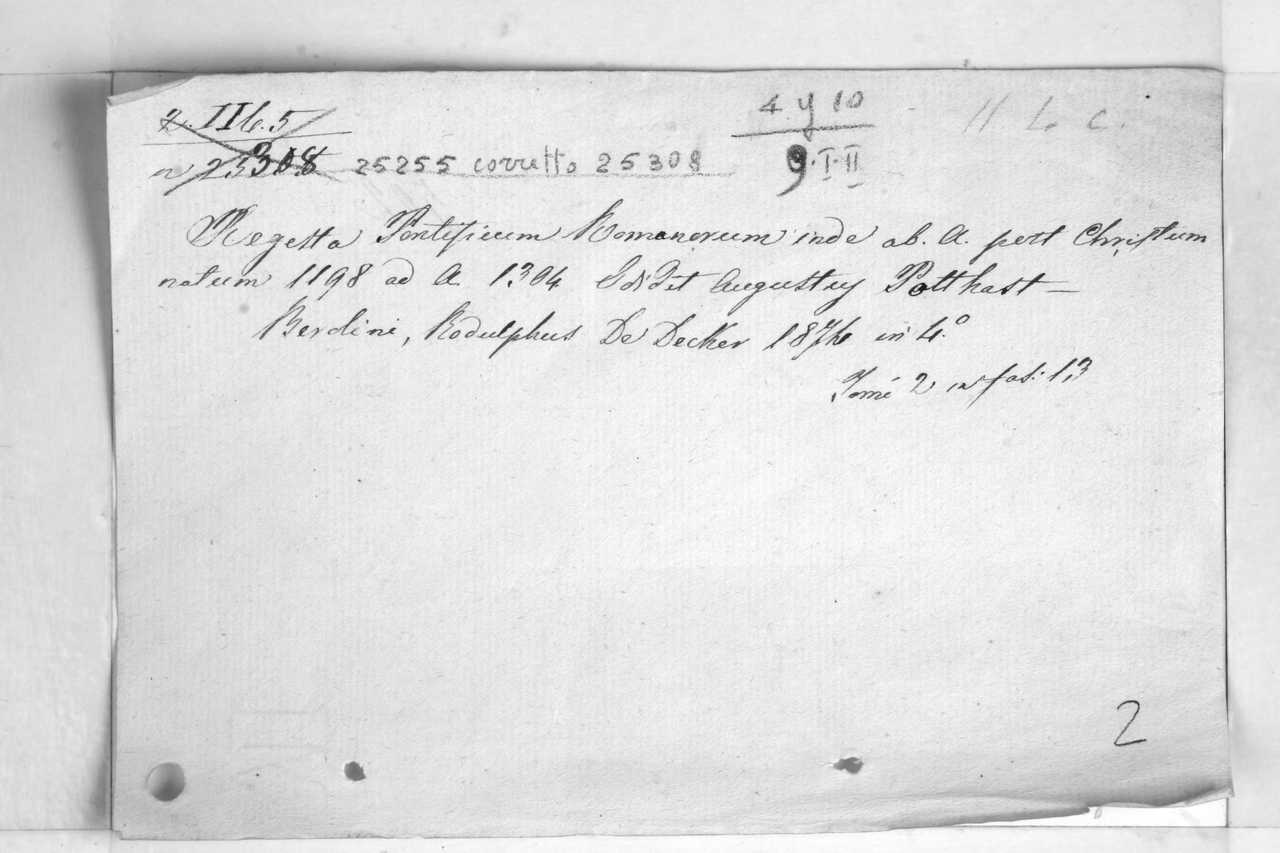 2. II b. 5 4. y 10 II b c.
n 25308 25255 corretto 25308 9. I. II
Regesta Pontificum Romanorum inde ab. A. post Christum
natum 1198 ad A. 1304 Edidit Augustus Potthast —
Berolini, Rodulphus De Decker 1874 in 4.º
Tomi 2 in fas: 13
2